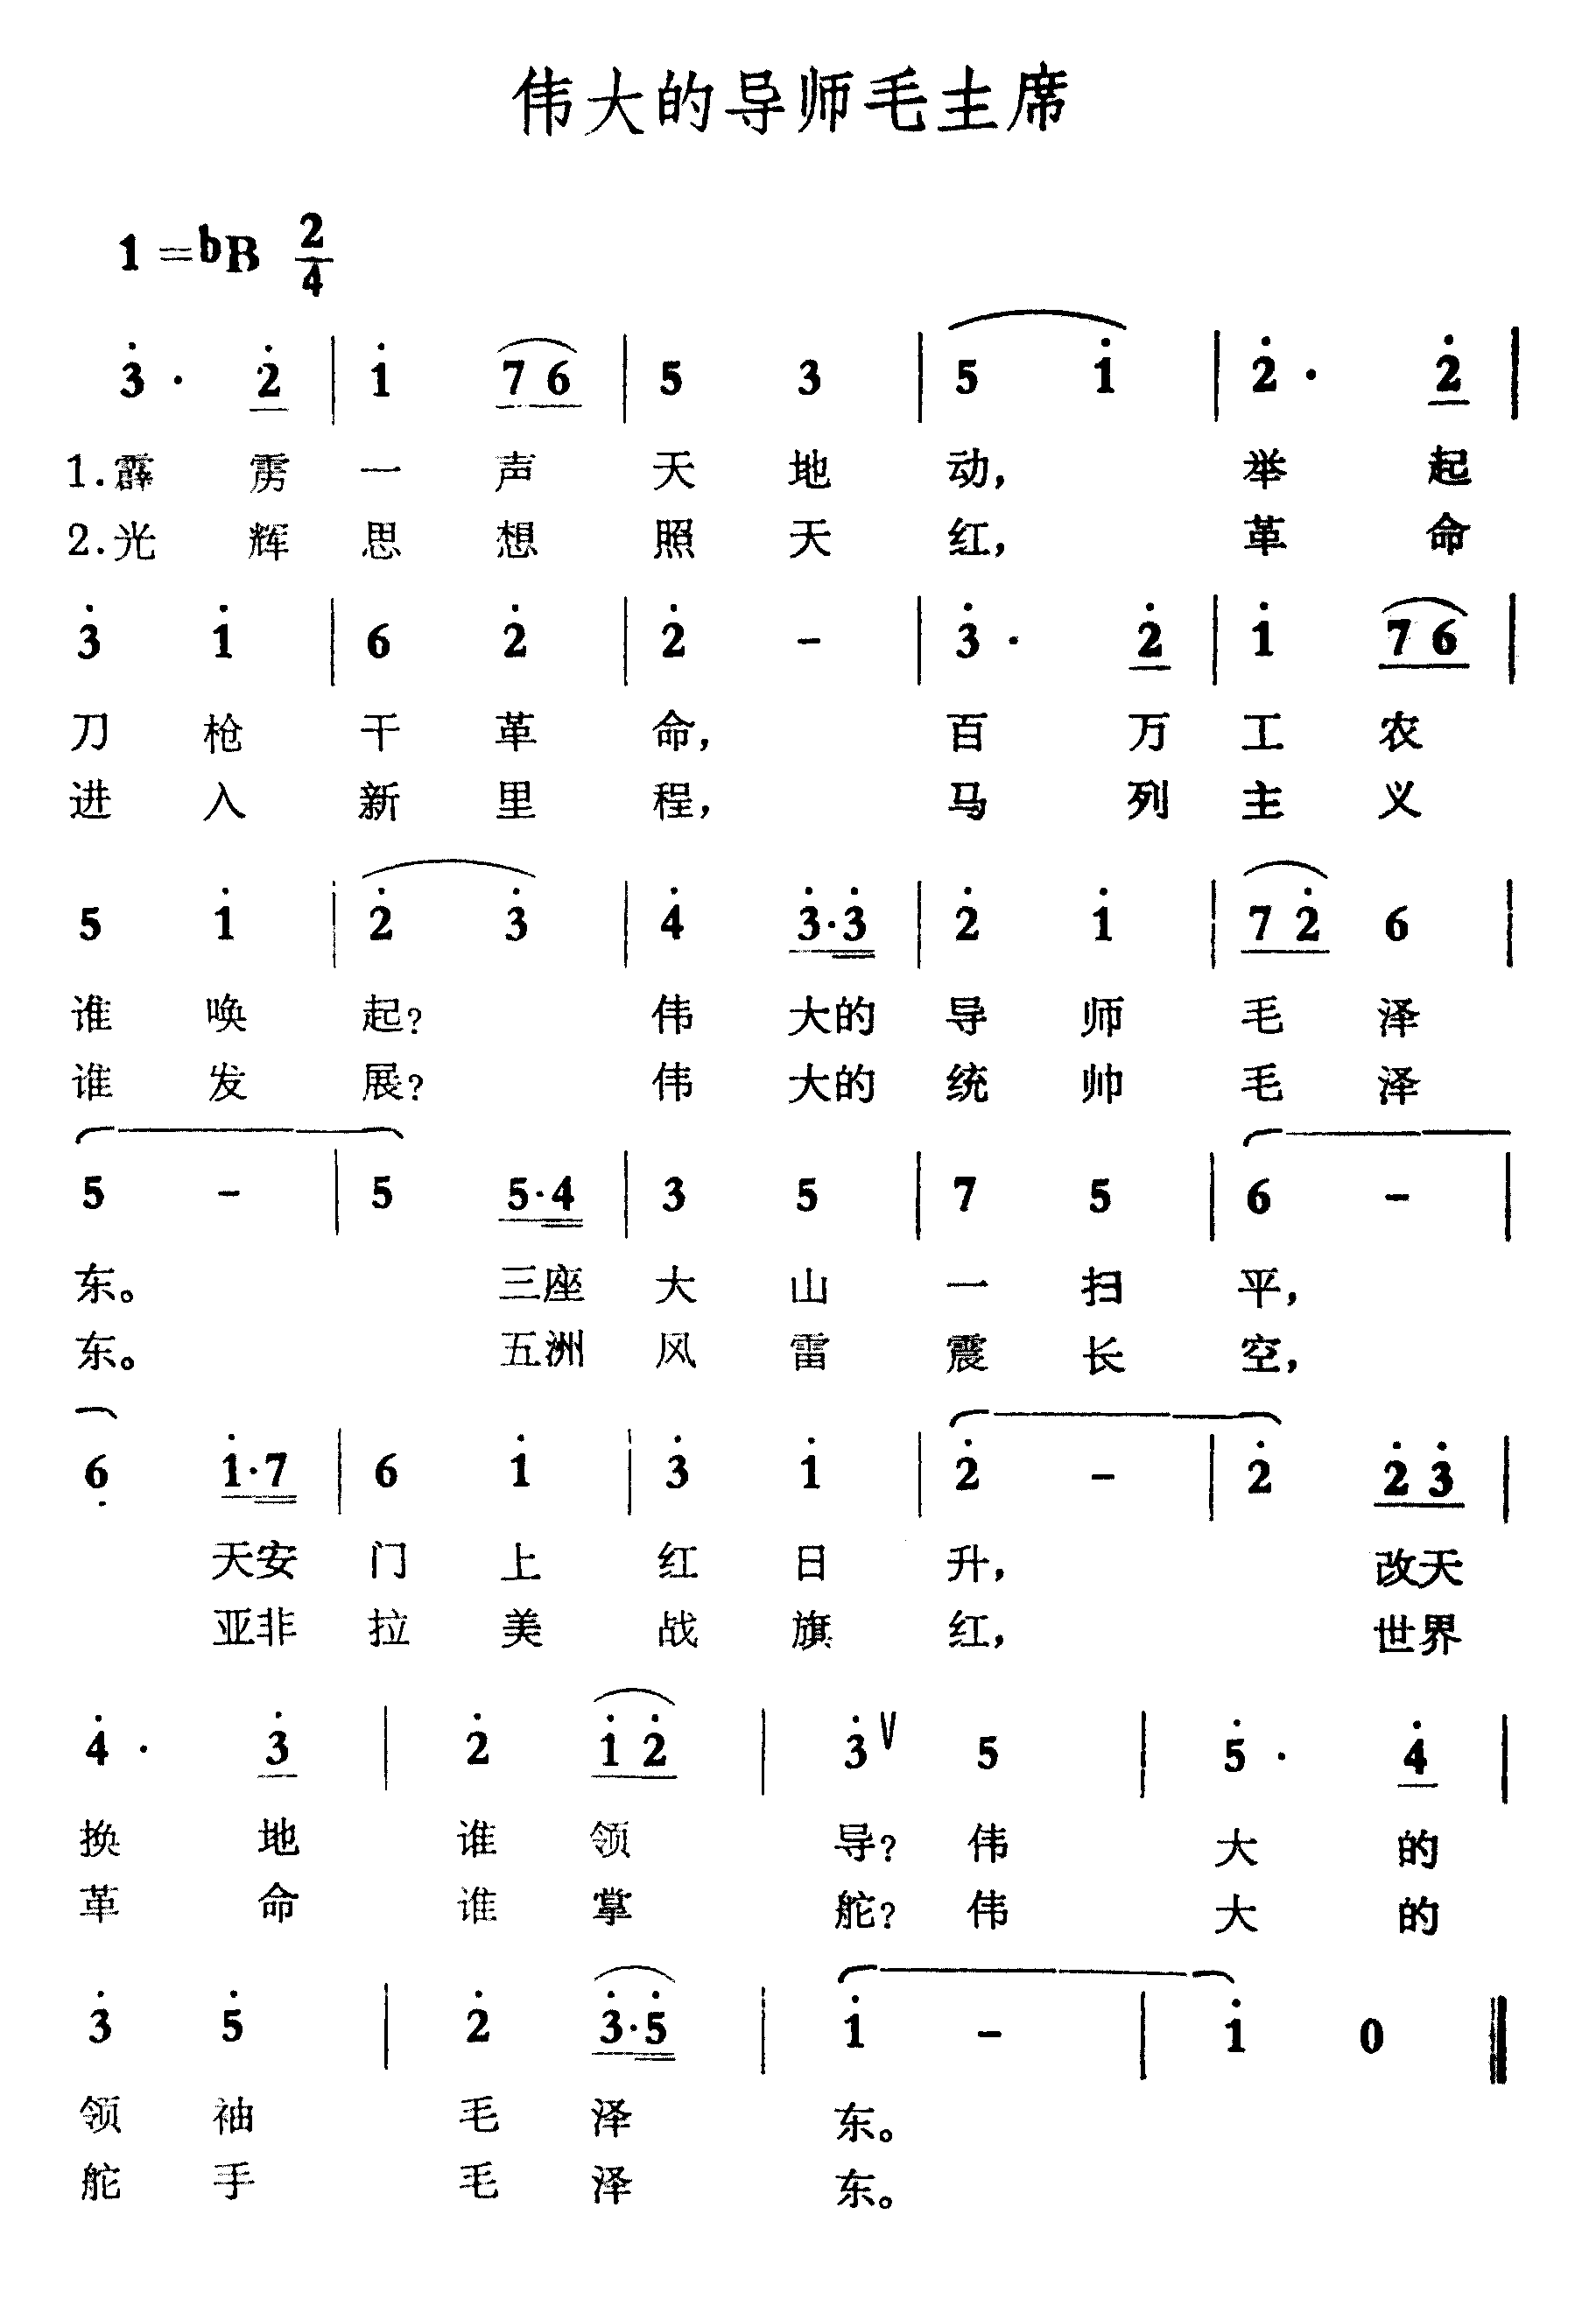 伟大的导师毛主席
1=bB 2/4
3̇· 2̇ | 1̇ 7 6 | 5 3 | 5 1̇ | 2̇· 2̇ |
1.霹雳一声天地动，举起
2.光辉思想照天红，革命
3̇ 1̇ | 6 2̇ | 2̇ - | 3̇· 2̇ | 1̇ 7 6 |
刀枪干革命，百万工农
进入新里程，马列主义
5 1̇ | 2̇ 3̇ | 4̇ 3̇·3̇ | 2̇ 1̇ | 7 2̇ 6 |
谁唤起?伟大的导师毛泽
谁发展?伟大的统帅毛泽
5 - | 5 5·4 | 3 5 | 7 5 | 6 - |
东。三座大山一扫平，
东。五洲风雷震长空，
6̣ 1̇·7 | 6 1̇ | 3̇ 1̇ | 2̇ - | 2̇ 2̇ 3̇ |
天安门上红日升，改天
亚非拉美战旗红，世界
4̇· 3̇ | 2̇ 1̇ 2̇ | 3̇ V 5 | 5̇· 4̇ |
换地谁领导?伟大的
革命谁掌舵?伟大的
3̇ 5̇ | 2̇ 3̇·5̇ | 1̇ - | 1̇ 0 ‖
领袖毛泽东。
舵手毛泽东。